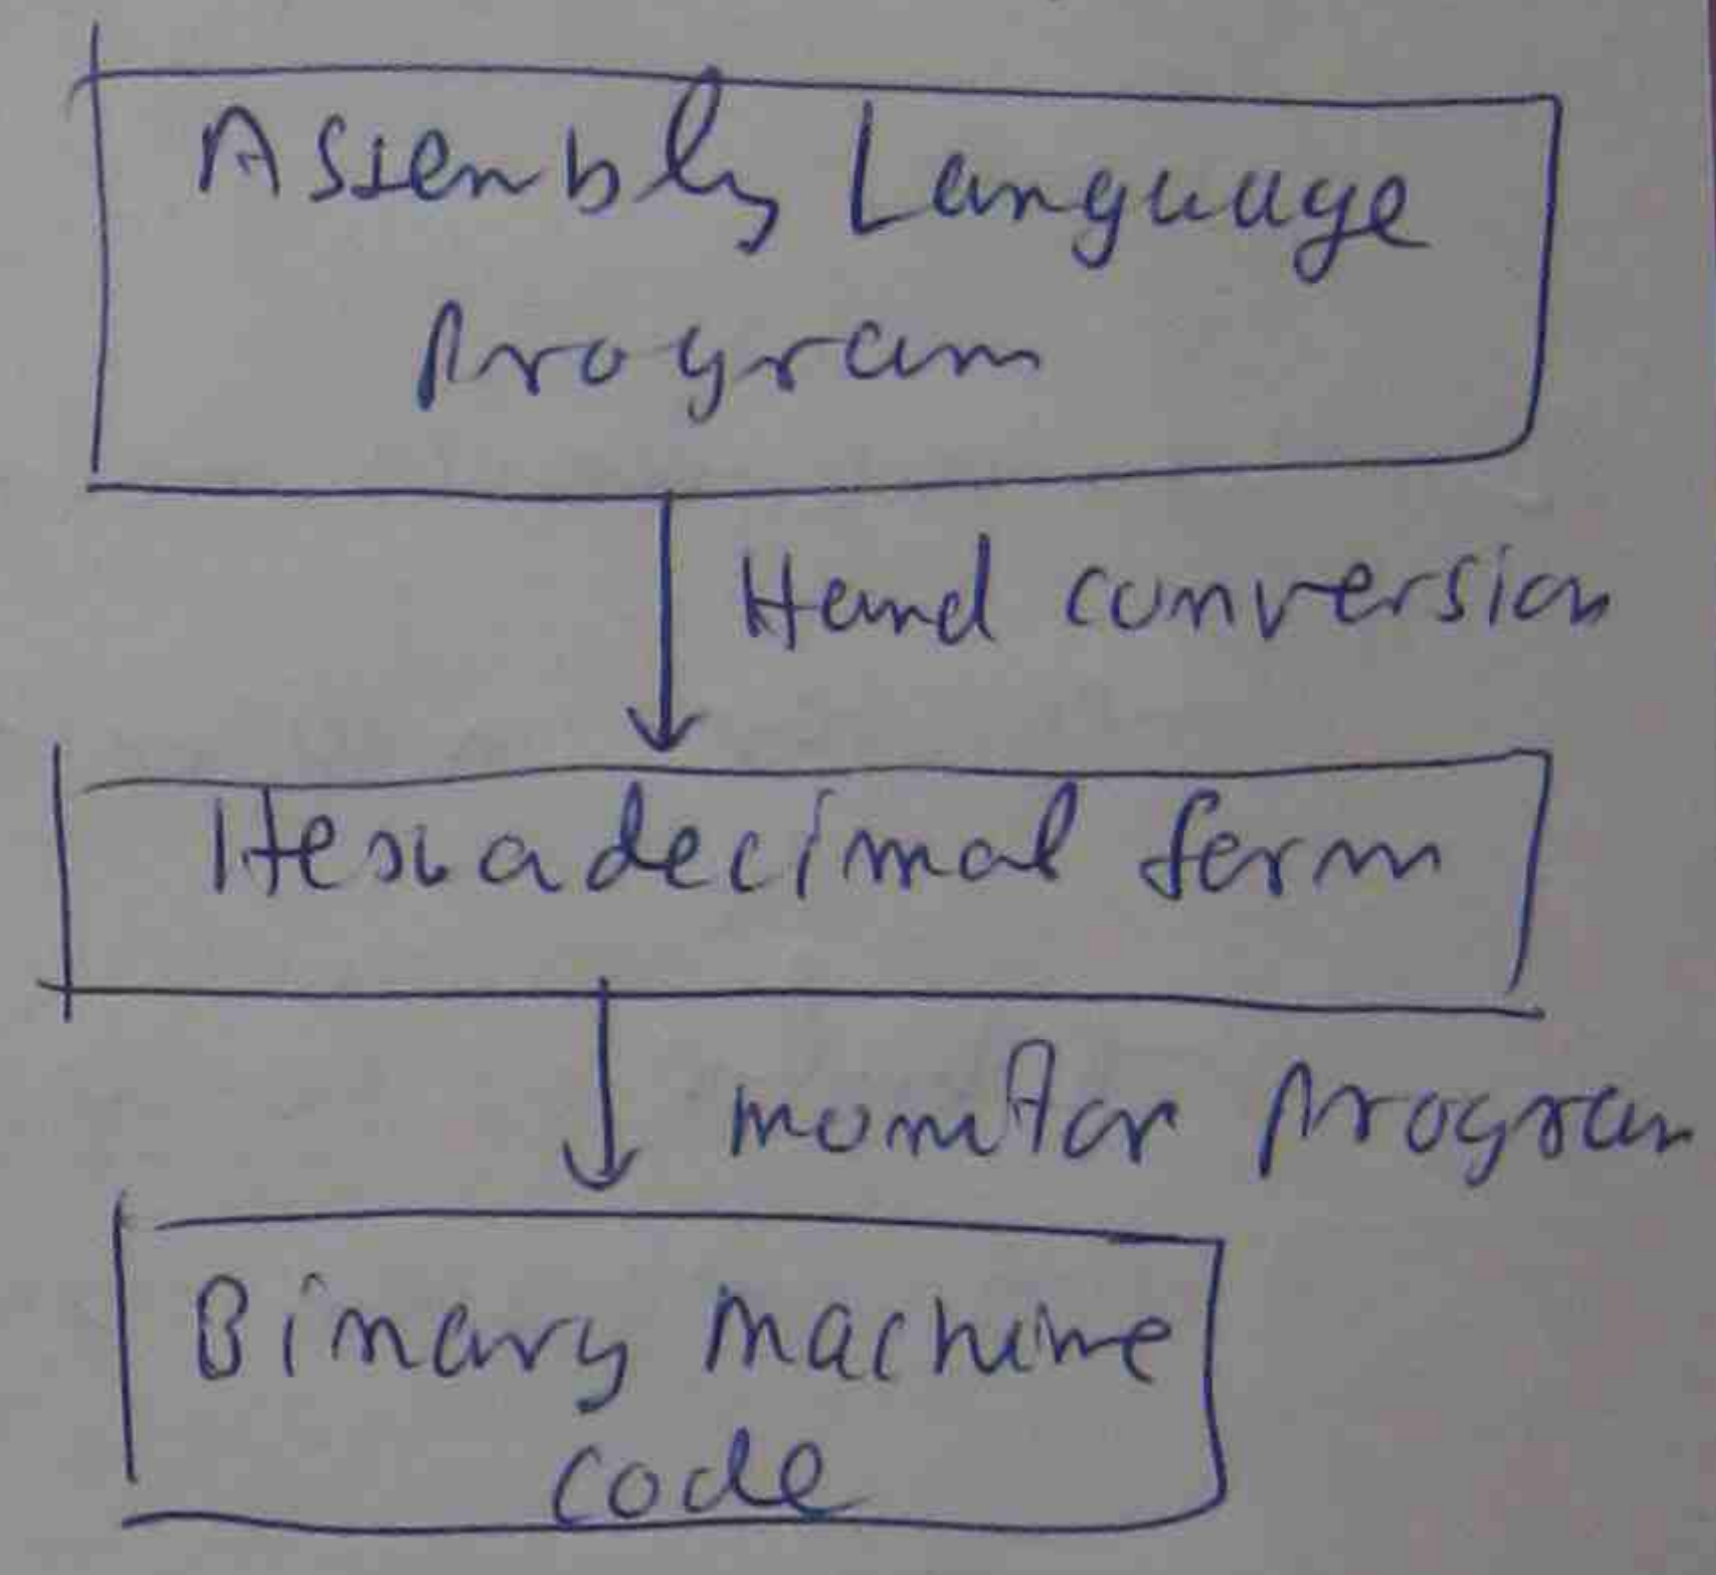 Assembly Language
Program
Hand conversion
Hexadecimal form
monitor program
Binary machine
code